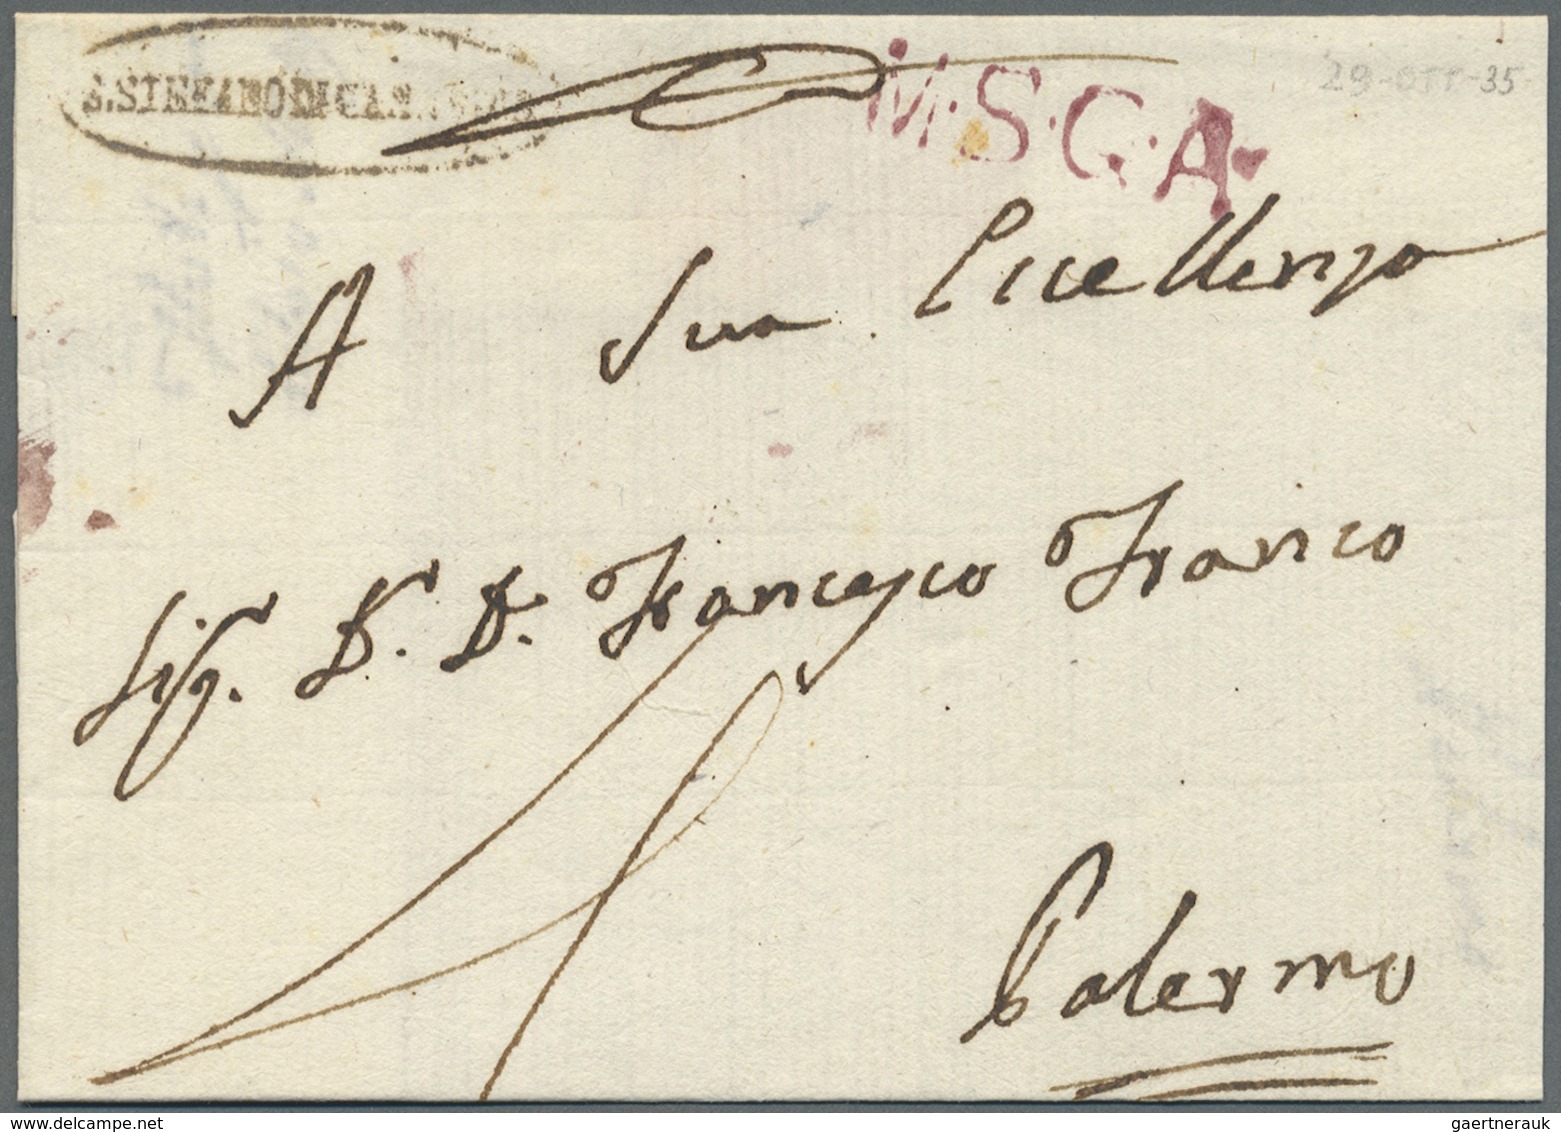 S. STEFANO DI
M.S.G.A.
29-OTT-35
A Sua Eccellenza
Sig. D. D. Francesco Franco
Palermo
gaertnerauk